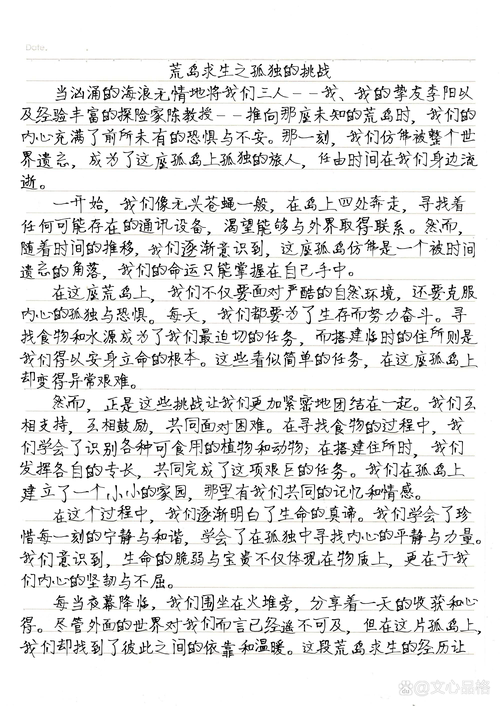 Date.
荒岛求生之孤独的挑战
当汹涌的海浪无情地将我们三人--我、我的挚友李阳以
及经验丰富的探险家陈教授--推向那座未知的荒岛时，我们的
内心充满了前所未有的恐惧与不安。那一刻，我们仿佛被整个世
界遗忘，成为了这座孤岛上孤独的旅人，任由时间在我们身边流
逝。
一开始，我们像无头苍蝇一般，在岛上四处奔走，寻找着
任何可能存在的通讯设备，渴望能够与外界取得联系。然而，
随着时间的推移，我们逐渐意识到，这座孤岛仿佛是一个被时间
遗忘的角落，我们的命运只能掌握在自己手中。
在这座荒岛上，我们不仅要面对严酷的自然环境，还要克服
内心的孤独与恐惧。每天，我们都要为了生存而努力奋斗。寻
找食物和水源成为了我们最迫切的任务，而搭建临时的住所则是
我们得以安身立命的根本。这些看似简单的任务，在这座孤岛上
却变得异常艰难。
然而，正是这些挑战让我们更加紧密地团结在一起。我们互
相支持，互相鼓励，共同面对困难。在寻找食物的过程中，我
们学会了识别各种可食用的植物和动物；在搭建住所时，我们
发挥各自的专长，共同完成了这项艰巨的任务。我们在孤岛上
建立了一个小小的家园，那里有我们共同的记忆和情感。
在这个过程中，我们逐渐明白了生命的真谛。我们学会了珍
惜每一刻的宁静与和谐，学会了在孤独中寻找内心的平静与力量。
我们意识到，生命的脆弱与宝贵不仅体现在物质上，更在于我
们内心的坚韧与不屈。
每当夜幕降临，我们围坐在火堆旁，分享着一天的收获和心
得。尽管外面的世界对我们而言已经遥不可及，但在这片孤岛上，
我们却找到了彼此之间的依靠和温暖。这段荒岛求生的经历让
@文心品格